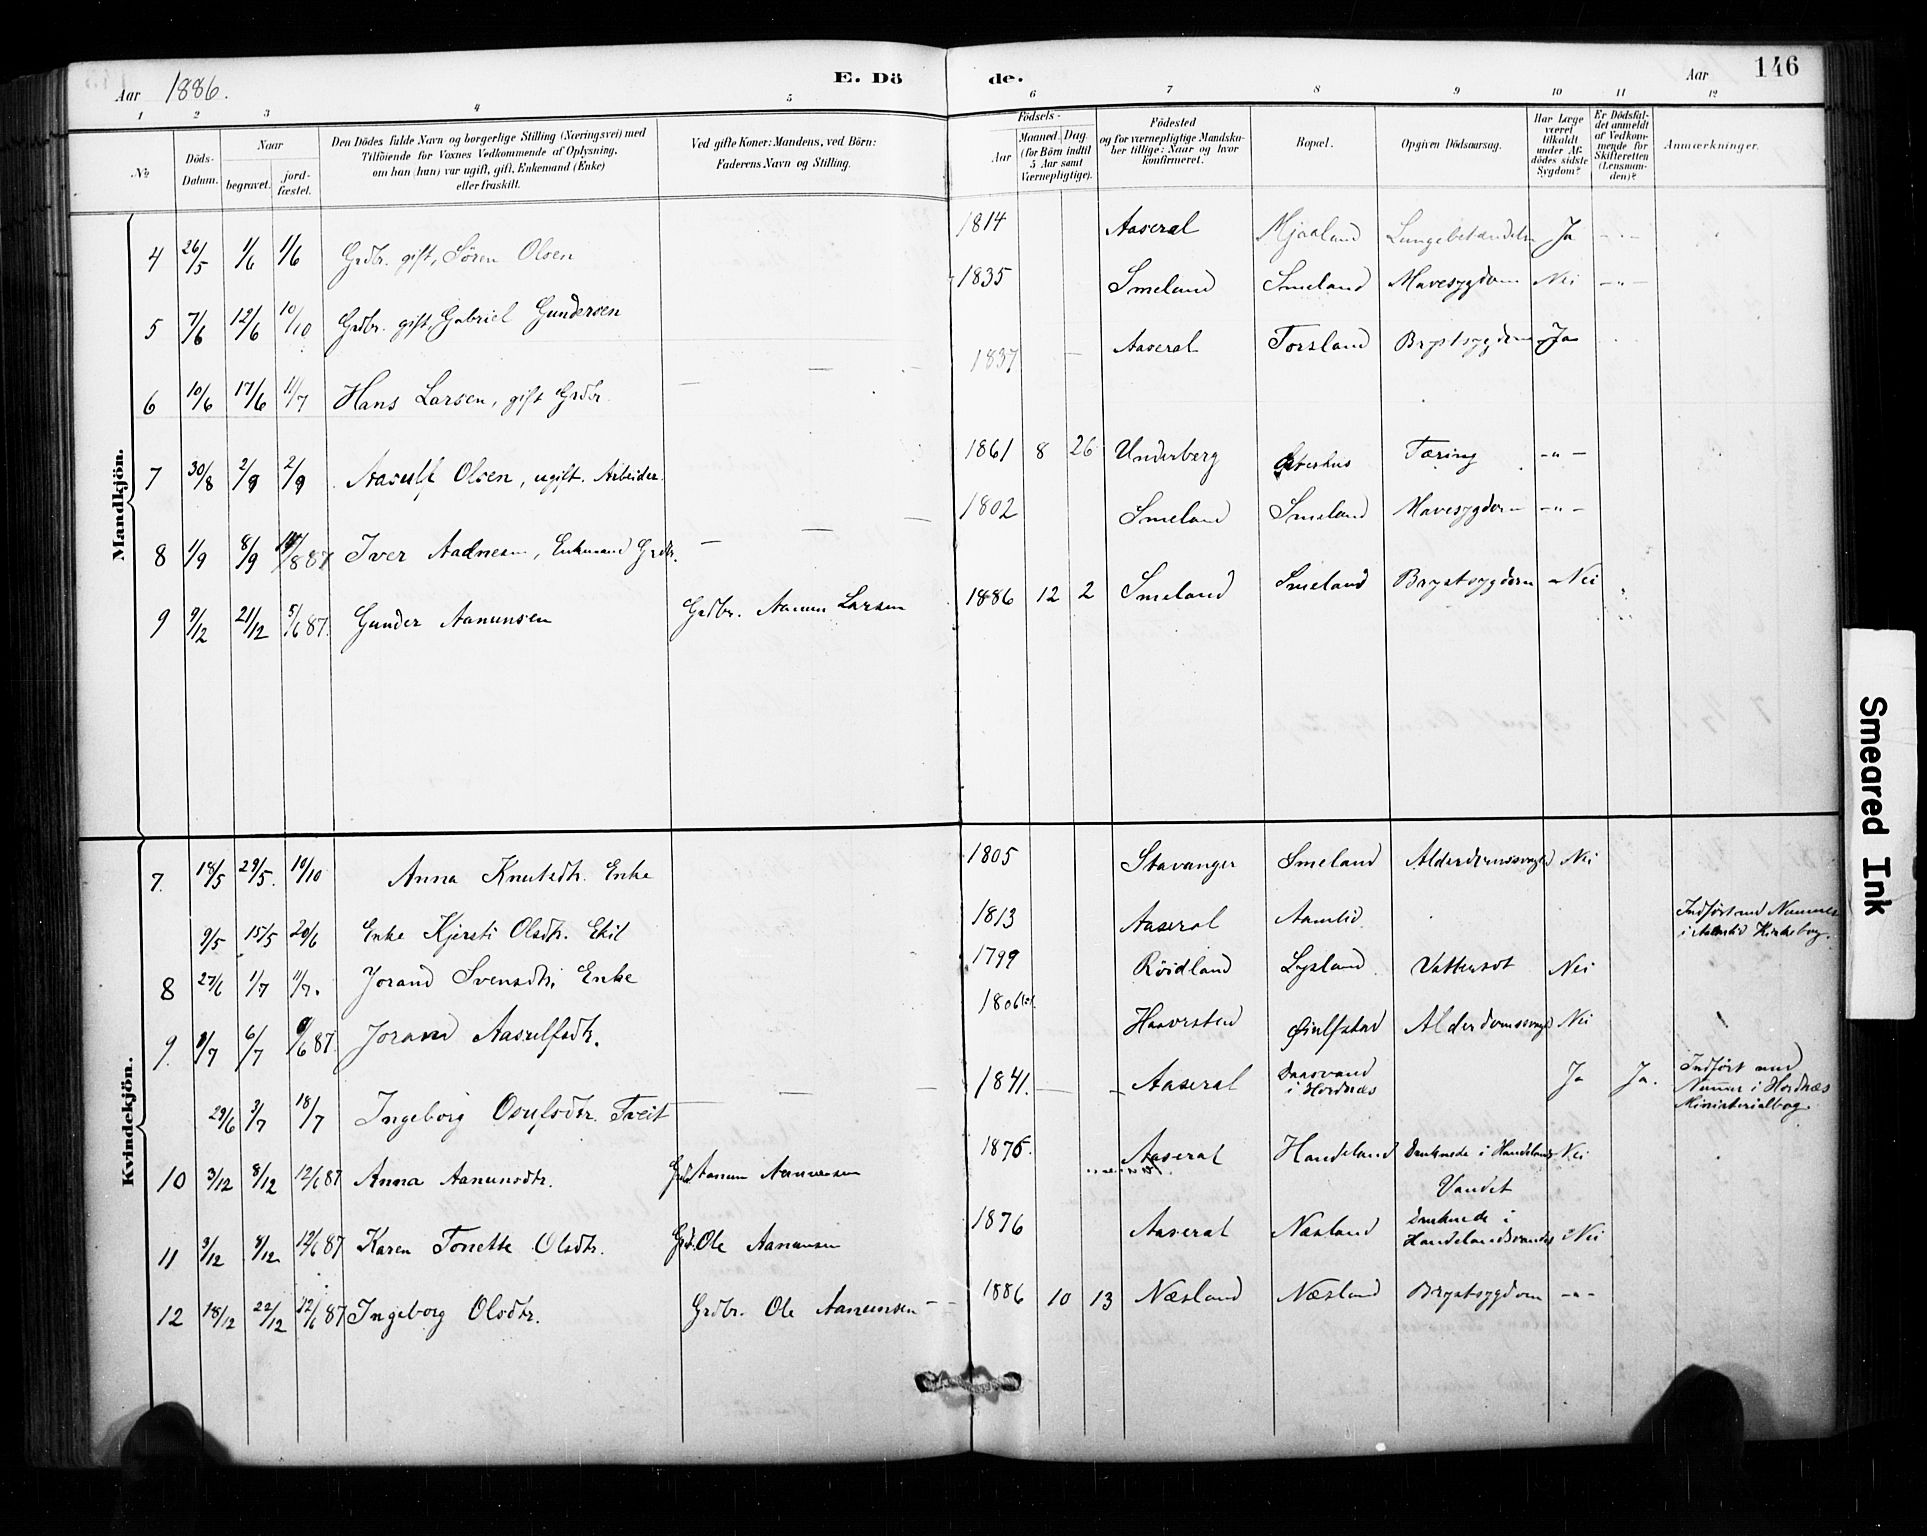 Aar 1886. E. Dö de. Aar 146
1 2 3 4 5 6 7 8 9 10 11 12
№ Döds-Datum. Naar begravet. jord-fæstet. Den Dödes fulde Navn og borgerlige Stilling (Næringsvei) med Tilföiende for Voxnes Vedkommende af Oplysning, om han (hun) var ugift, gift, Enkemand (Enke) eller fraskilt. Ved gifte Koner: Mandens, ved Börn: Faderens Navn og Stilling. Födsels- Aar Maaned. Dag. (for Börn indtil 5 Aar samt Værnepligtige). Födested og for værnepligtige Mandska-ber tillige: Naar og hvor konfirmeret. Bopæl. Opgiven Dödsaarsag. Har Læge været tilkaldt under Af-dödes sidste Sygdom? Er Dödsfal-det anmeldt af Vedkom-mende for Skifteretten (Lensman-den)? Anmærkninger.
Mandkjön.
4 26/5 1/6 1/6 Grdbr. gift, Sören Olsen 1814 Aaseral Mjaaland Lungebetændelse Ja -"-
5 7/6 12/6 10/10 Grdbr. gift, Gabriel Gundersen 1835 Smeland Smeland Mavesygdom Nei -"-
6 10/6 17/6 11/7 Hans Larsen, gift Grdbr. 1837 Aaseral Torsland Brystsygdom Ja
7 30/8 2/9 2/9 Aasulf Olsen, ugift. Arbeider. 1861 8 26 Underberg Tæring -"-
8 1/9 8/9 /8 87 Iver Aadnesen, Enkemand Grdbr. 1802 Smeland Smeland Mavesygdom -"-
9 9/12 21/12 5/6 87. Gunder Aanunsen Grdbr. Aanun Larsen 1886 12 2 Smeland Smeland Brystsygdom Nei
Kvindekjön.
7. 18/5 29/5. 10/10 Anna Knutsdtr. Enke 1805 Stavanger Smeland Alderdomssvaghed Nei
9/5 15/5 20/6 Enke Kjersti Olsdtr. Ekil 1813 Aaseral Aamlid Indfört med Nummer
i Aamlid Kirkebog.
8 27/6 1/7 11/7. Jorand Svensdtr. Enke 1799 Röidland Lysland Vattersot Nei
9. 1/7 6/7 /6 87. Jorand Aasulfsdtr. 1806 Haavrsten Alderdomssvaghed Nei
29/6 3/7 18/7 Ingeborg Osulfsdtr. Tveit 1841. Aaseral Daasvand
i Hordnæs Ja Ja. Indfört med
Nummer i Hordnæs
Ministerialbog.
10 3/12 8/12 12/6 87 Anna Aanunsdtr. Grdbr. Aanun Aanunsen 1875. Aaseral Handeland Druknede i Handelands
Vandet Nei
11 3/12 8/12 12/6 87 Karen Tonette Olsdtr. Grdbr. Ole Aanunsen 1876 Aaseral Næsland Druknede i
Handelandsvandet Nei
12 18/12 22/12 12/6 87 Ingeborg Olsdtr. Grdbr. Ole Aanunsen 1886 10 13 Næsland Næsland Brystsygdom -"-
Smeared Ink